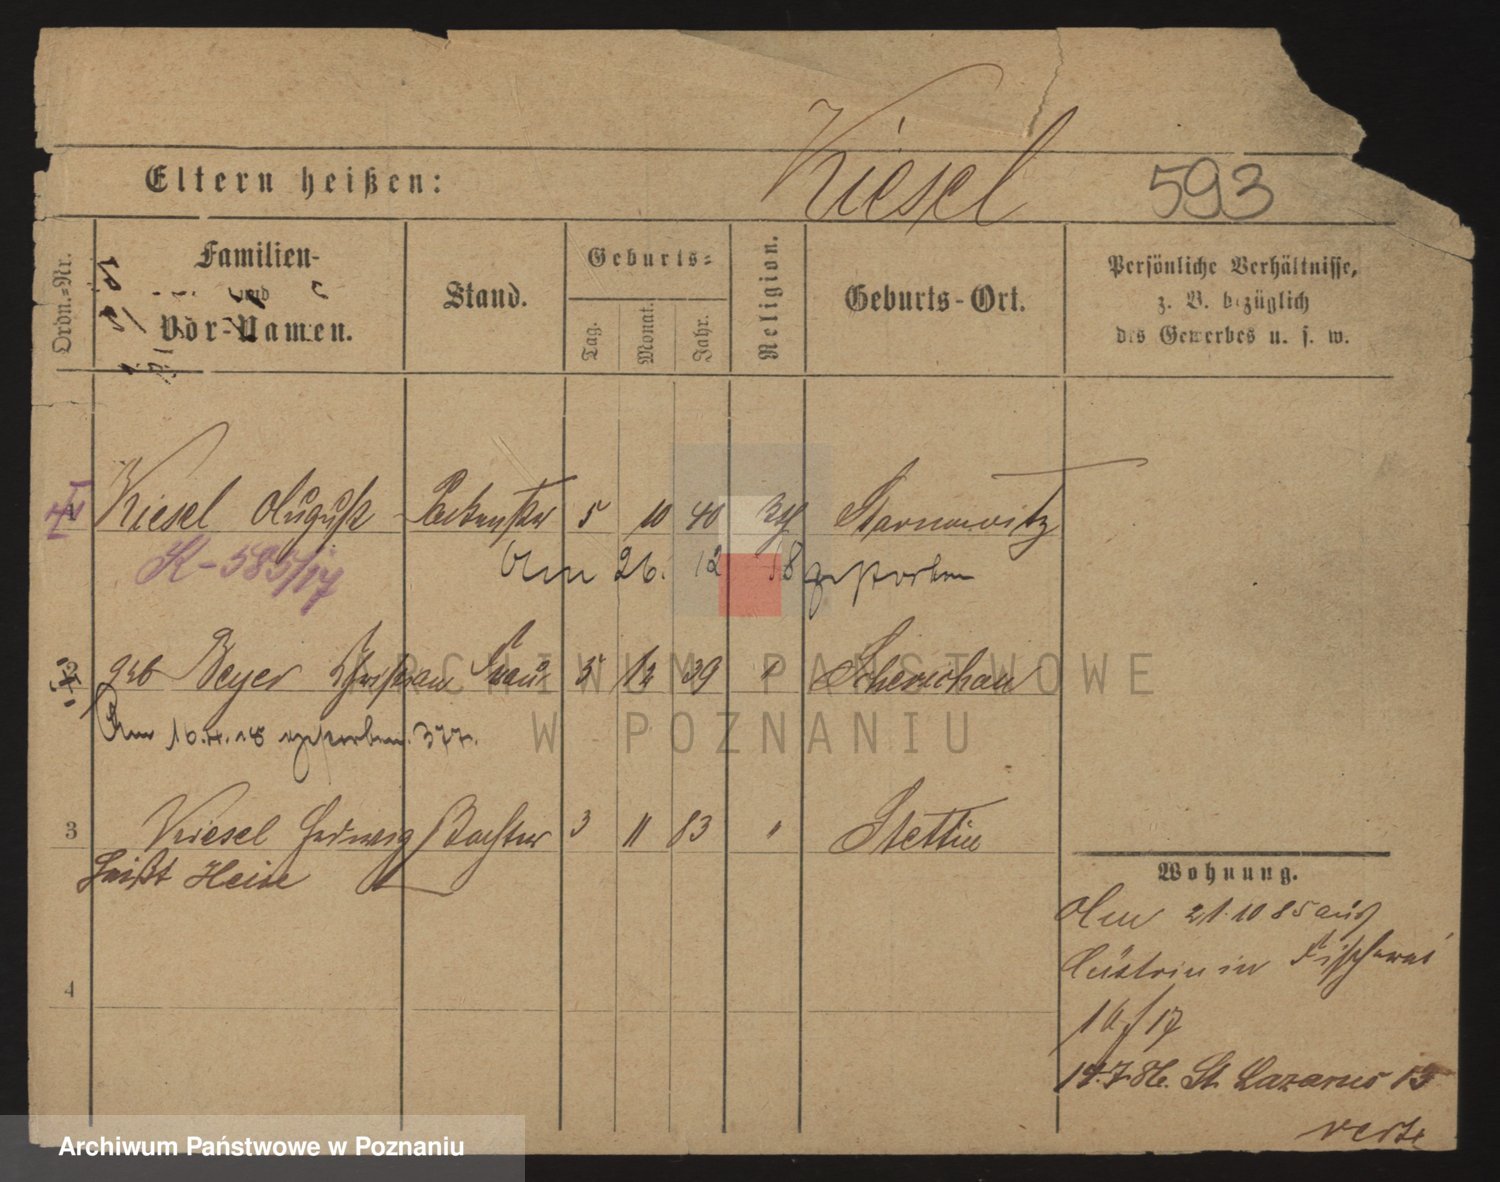 Kiesel
Eltern heißen:
593
Ordn.-Nr.
Familien-
und
Vor-Namen.
Stand.
Geburts-
Tag.
Monat.
Jahr.
Religion.
Geburts-Ort.
Persönliche Verhältnisse,
z. B. bezüglich
des Gewerbes u. s. w.
Kiesel August 5 10 40 Starnowitz
K-585/17
Am 26. 12 18 gestorben
2 geb Beyer Frau 5 12 39 "
Am 16.4.18 gestorben. 377.
3 Kiesel Hedwig Tochter 3 11 83 " Stettin
heißt Heise
4
Wohnung.
Am 21.10 85 aus
Cüstrin in Fischerei
16/17
14.7.86. St. Lazarus 13
verte
ARCHIWUM PAŃSTWOWE
W POZNANIU
Archiwum Państwowe w Poznaniu